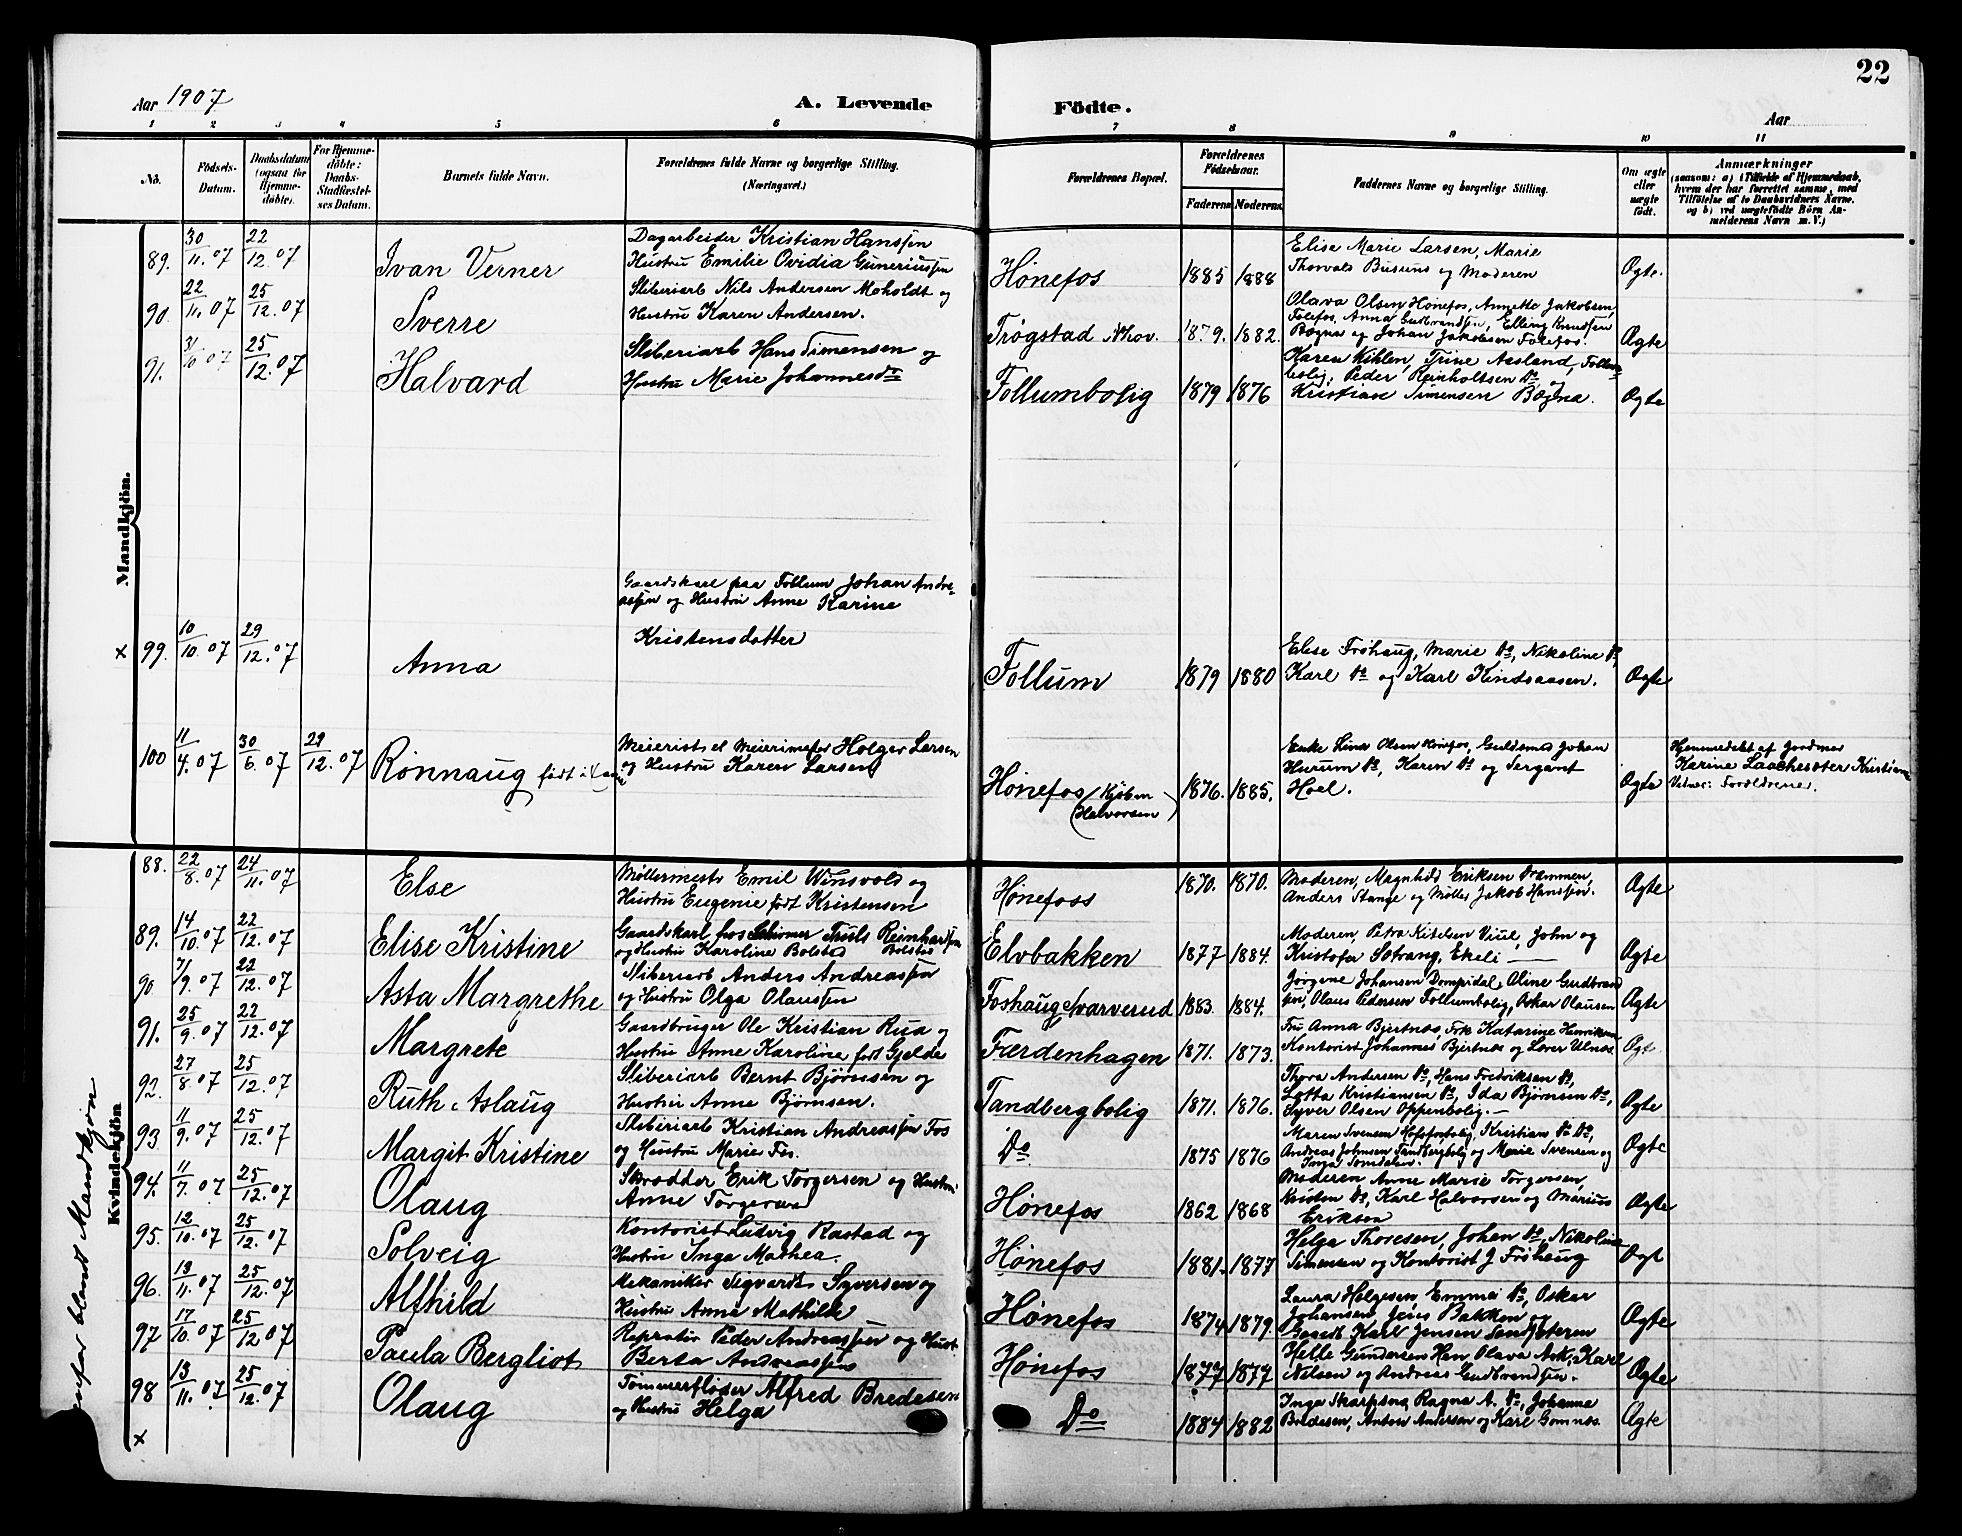 22
Aar 1907
A. Levende Födte.
Aar
1 2 3 4 5 6 7 8 9 10 11
No.
Födsels-Datum.
Daabsdatum (ogsaa for Hjemmedöbte).
For Hjemmedöbte: Daabs-Stadfæstelses Datum.
Barnets fulde Navn.
Forældrenes fulde Navne og borgerlige Stilling. (Næringsvei.)
Forældrenes Bopæl.
Forældrenes Födselsaar.
Faderens Moderens.
Faddernes Navne og borgerlige Stilling.
Om ægte eller uægte födt.
Anmærkninger
(saasom: a) i Tilfælde af Hjemmedaab, hvem der har forrettet samme, med Tilföielse af to Daabsvidners Navne, og b) ved uægtefödte Börn Anmelderens Navn m. V.)
Mandkjön.
89. 30/11.07 22/12.07 Ivan Verner
Dagarbeider Kristian Hanssen
Hustru Emilie Ovidia Guneriussen
Hønefos 1885 1888
Elise Marie Larsen, Marie
Thorvald Busund og Moderen
Ægte.
90. 22/11.07 25/12.07 Sverre
Sliberiarb Nils Andersen Moholdt og
Hustru Karen Andersen.
Trøgstad Nhov. 1879. 1882.
Olava Olsen Hønefos, Annette Jakobsen,
Follefos, Anna Gudbrandsen, Elling Knudsen
Bægna og Johan Jakobsen Follefos.
Ægte
91. 31/10 07 25/12.07 Halvard
Sliberiarb Hans Simensen og
Hustru Marie Johannesdtr
Follumbolig 1879 1876
Karen Kihlen, Trine Aasland, Follum
bolig, Peder Reinholtsen Do og
Kristian Simensen Bægna.
Ægte
Gaardskarl paa Follum Johan Andre-
assen og Hustru Anne Karine
Kristensdatter
x 99. 10/10.07 29/12.07 Anna
Follum 1879 1880
Elise Frøhaug, Marie Do, Nikoline Do,
Karl Do og Karl Kindsaasen.
Ægte
100 11/4.07 30/6.07 29/12.07 Rønnaug født i
Meierist el Meierimester Holger Larsen
og Hustru Karen Larsen
Hønefos (Kjøbm Halvorsen) 1876. 1885.
Enke Lina Olsen Hønefos, Guldsmed Johan
Hurum Do, Karen Do og Sergant
Hoel.
Ægte
Hjemmedøbt af Jordmor
Karine Laachesæter Kristians
Vidner: Forældrene.
Kvindekjön
88. 22/8.07 24/11.07 Else
Møllermester Emil Winsvold og
Hustru Eugenie født Kristensen
Hønefoss 1870. 1870.
Moderen, Magnhild Eriksen Drammen,
Anders Stange og Møller Jakob Hanssen.
Ægte
89. 14/10.07 22/12.07 Elise Kristine
Gaardskarl hos Schirmer Truls Reinhardsen Bolstad
og Hustru Karoline Bolstad
Elvbakken 1877 1884.
Moderen, Petra Kitelsen Viul, John og
Kristofer Sotrang, Ekeli
Ægte
90. 7/9.07 22/12.07 Asta Margrethe
Sliberiarb Anders Andreassen
og Hustru Olga Olaussen
Foshaug Svarverud 1883. 1884.
Jørgene Johansen Dompidal, Oline Gudbrand
sen, Olaus Pedersen Follumbolig, Oskar Olausen
Ægte
91. 25/9.07 22/12.07 Margrete
Gaardbruger Ole Kristian Rua og
Hustru Anne Karoline født Gjelde
Færdenhagen 1871. 1873.
Fru Anna Bjertnæs, Frk Katarine Henriksen
Kontorist Johannes Bjertnæs og Lærer Ulnæs.
Ægte
92. 27/8.07 25/12.07 Ruth Aslaug
Sliberiarb Bernt Bjørnsen og
Hustru Anne Bjørnsen.
Tandbergbolig 1871. 1876.
Thora Andersen Do, Hans Fredriksen Do,
Lotta Kristiansen Do, Ida Bjørnsen Do,
Syver Olsen Oppenbolig.
Ægte
93. 11/9.07 25/12.07 Margit Kristine
Sliberiarb Kristian Andreassen Fos
og Hustru Marie Fos.
Do 1875 1876
Maren Svensen Hofsfosbolig, Kristian Do Do,
Andreas Johnsen Tandbergbolig og Marie Svensen og
Inga Somdalen.
Ægte
94. 11/7.07 25/12.07 Olaug
Skrædder Erik Torgersen og Hustru
Anne Torgersen
Hønefos 1862 1868
Moderen Anne Marie Torgersen,
Kristen Do, Karl Halvorsen og Marius
Eriksen
Ægte
95. 12/10.07 25/12.07 Solveig
Kontorist Ludvig Rastad og
Hustru Inga Mathea.
Hønefos 1881. 1877
Helga Thoresen, Johan Do, Nikoline
Simensen og Kontorist J Frøhaug
Ægt
96. 13/11.07 25/12.07 Alfhild
Mekaniker Sigvardt Syversen og
Hustru Anna Mathilde
Hønefos 1874 1879.
Laura Helgesen, Emma Do, Oskar
Johansen Jens Bakken og
Gaardb. Karl Jensen Landsæteren
Ægte
97 17/10.07 25/12 07 Paula Bergliot
Repratør Peder Andreassen og Hust.
Berta Andreassen
Hønefos 1877 1877
Helle Gundersen Hen, Olava Ask, Karl
Nilsen og Andreas Gudbrandsen.
Ægte
98 13/11.07 25/12.07 Olaug
Tømmerfløder Alfred Bredesen
og Hustru Helga
Do 1884 1882
Inga Skarpsno, Ragna A. Do, Johanne
Bredesen, Anton Andersen og Karl Gomnæs.
Ægte
x
ovenfor blandt Mandkjøn